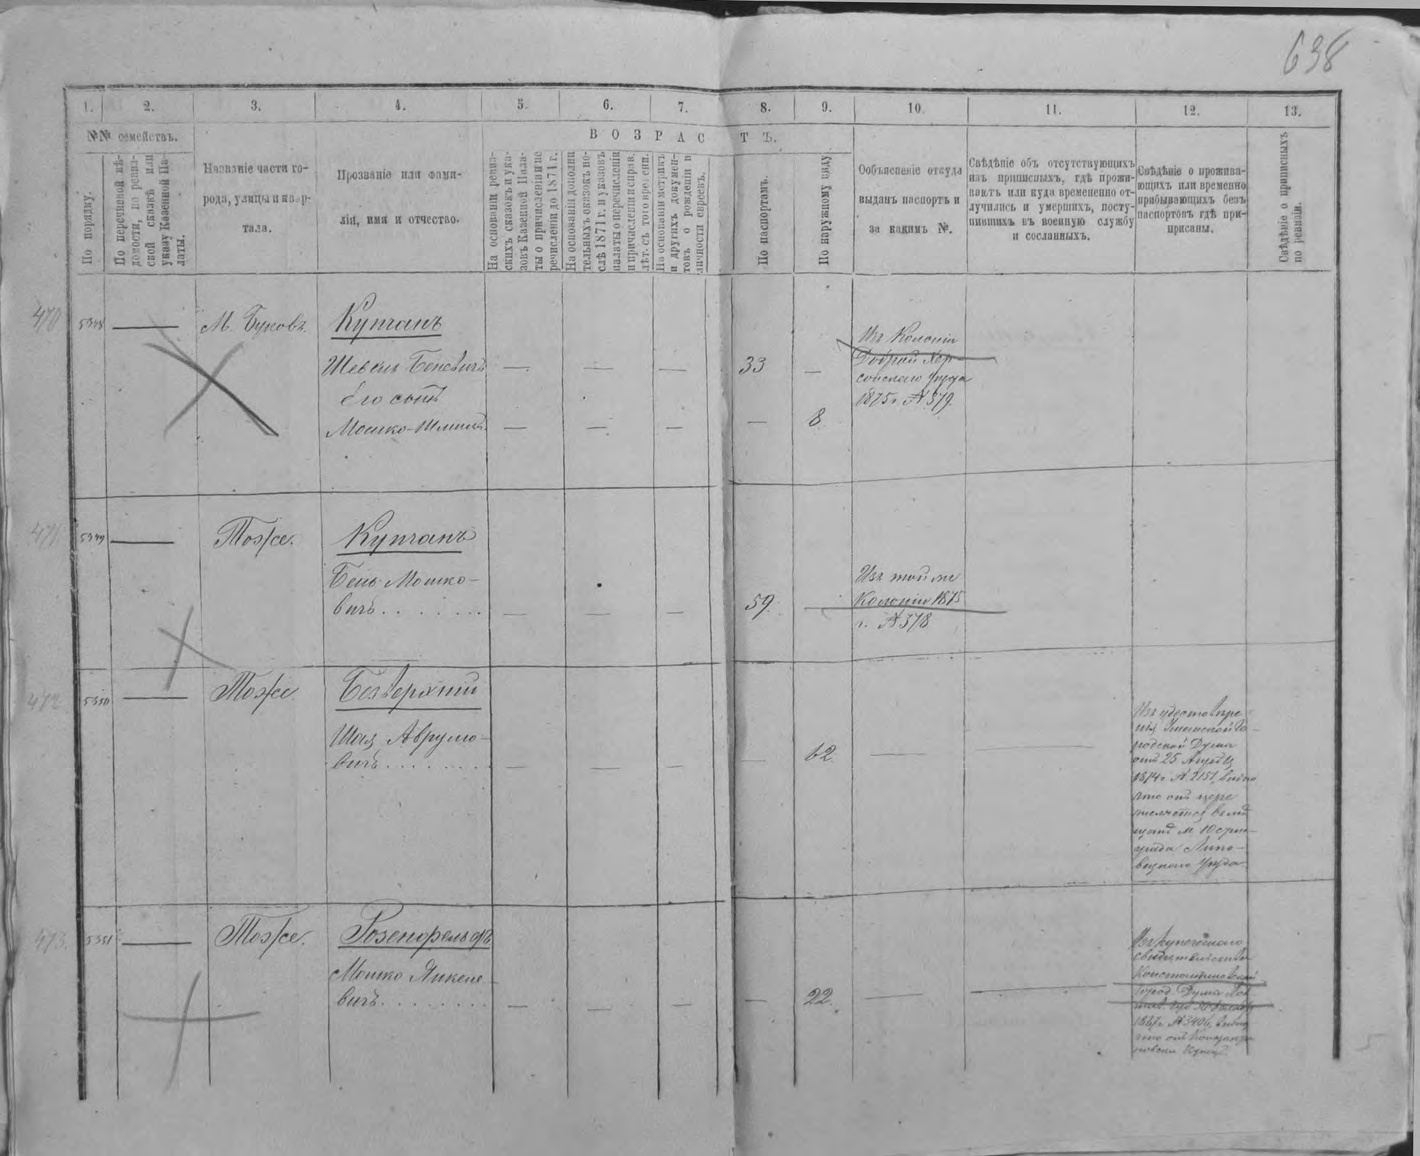 638
1. 2. 3. 4. 5. 6. 7. 8. 9. 10. 11. 12. 13.
№№ семействъ.
По порядку.
По перечневой вѣ-
домости, по ревиз-
ской сказкѣ или
указу Казенной Па-
латы.
Названіе части го-
рода, улицы и квар-
тала.
Прозваніе или фами-
лія, имя и отчество.
ВОЗРАСТЪ.
На основаніи ревиз-
скихъ сказокъ и ука-
зовъ Казенной Пала-
ты о причисленіи и пе-
речисленіи до 1871 г.
На основаніи дополни-
тельныхъ сказокъ по-
слѣ 1871 г. и указовъ
палаты о перечисленіи
и причисленіи и справ.
лѣт. съ того времени.
На основаніи метрикъ
и другихъ докумен-
товъ о рожденіи и
личности евреевъ.
По паспортамъ.
По наружному виду.
Объясненіе откуда
выданъ паспортъ и
за какимъ №.
Свѣдѣніе объ отсутствующихъ
изъ приписныхъ, гдѣ прожи-
ваютъ или куда временно от-
лучились и умершихъ, посту-
пившихъ въ военную службу
и сосланныхъ.
Свѣдѣніе о прожива-
ющихъ или временно
прибывающихъ безъ
паспортовъ гдѣ при-
писаны.
Свѣдѣніе о приписныхъ
по ревизіи.
470 5348 — М. Буковъ. Кутанъ
Беневичъ — — — 33 —
Его сынъ
Мошко — — — — 8
Изъ Колоніи
Доброй Хер
сонскаго уѣзда
1875 г. № 579
471 5349 — Тоже. Кутанъ
Бень Мошко-
вичъ . . . . . . — — — 59. —
Изъ той же
Колоніи 1875
г. № 578
472 5350 — Тоже Безверхній
Шая Аврумо-
вичъ . . . . . . . — — — — 62 — —
Изъ удостовѣре
нія Уманской Го-
родской Думы
отъ 25 Апрѣля
1874 г. № 2151, видно
что онъ
щанъ м. Юстин-
града Липо-
вецкаго уѣзда
473. 5351 — Тоже. Розенфельдъ
Мошко Янкеле
вичъ . . . . . . . — — — — 22 — —
Изъ купеческаго
свидѣтельства
Город. Думы
1867 г. № 3406, видно
что онъ